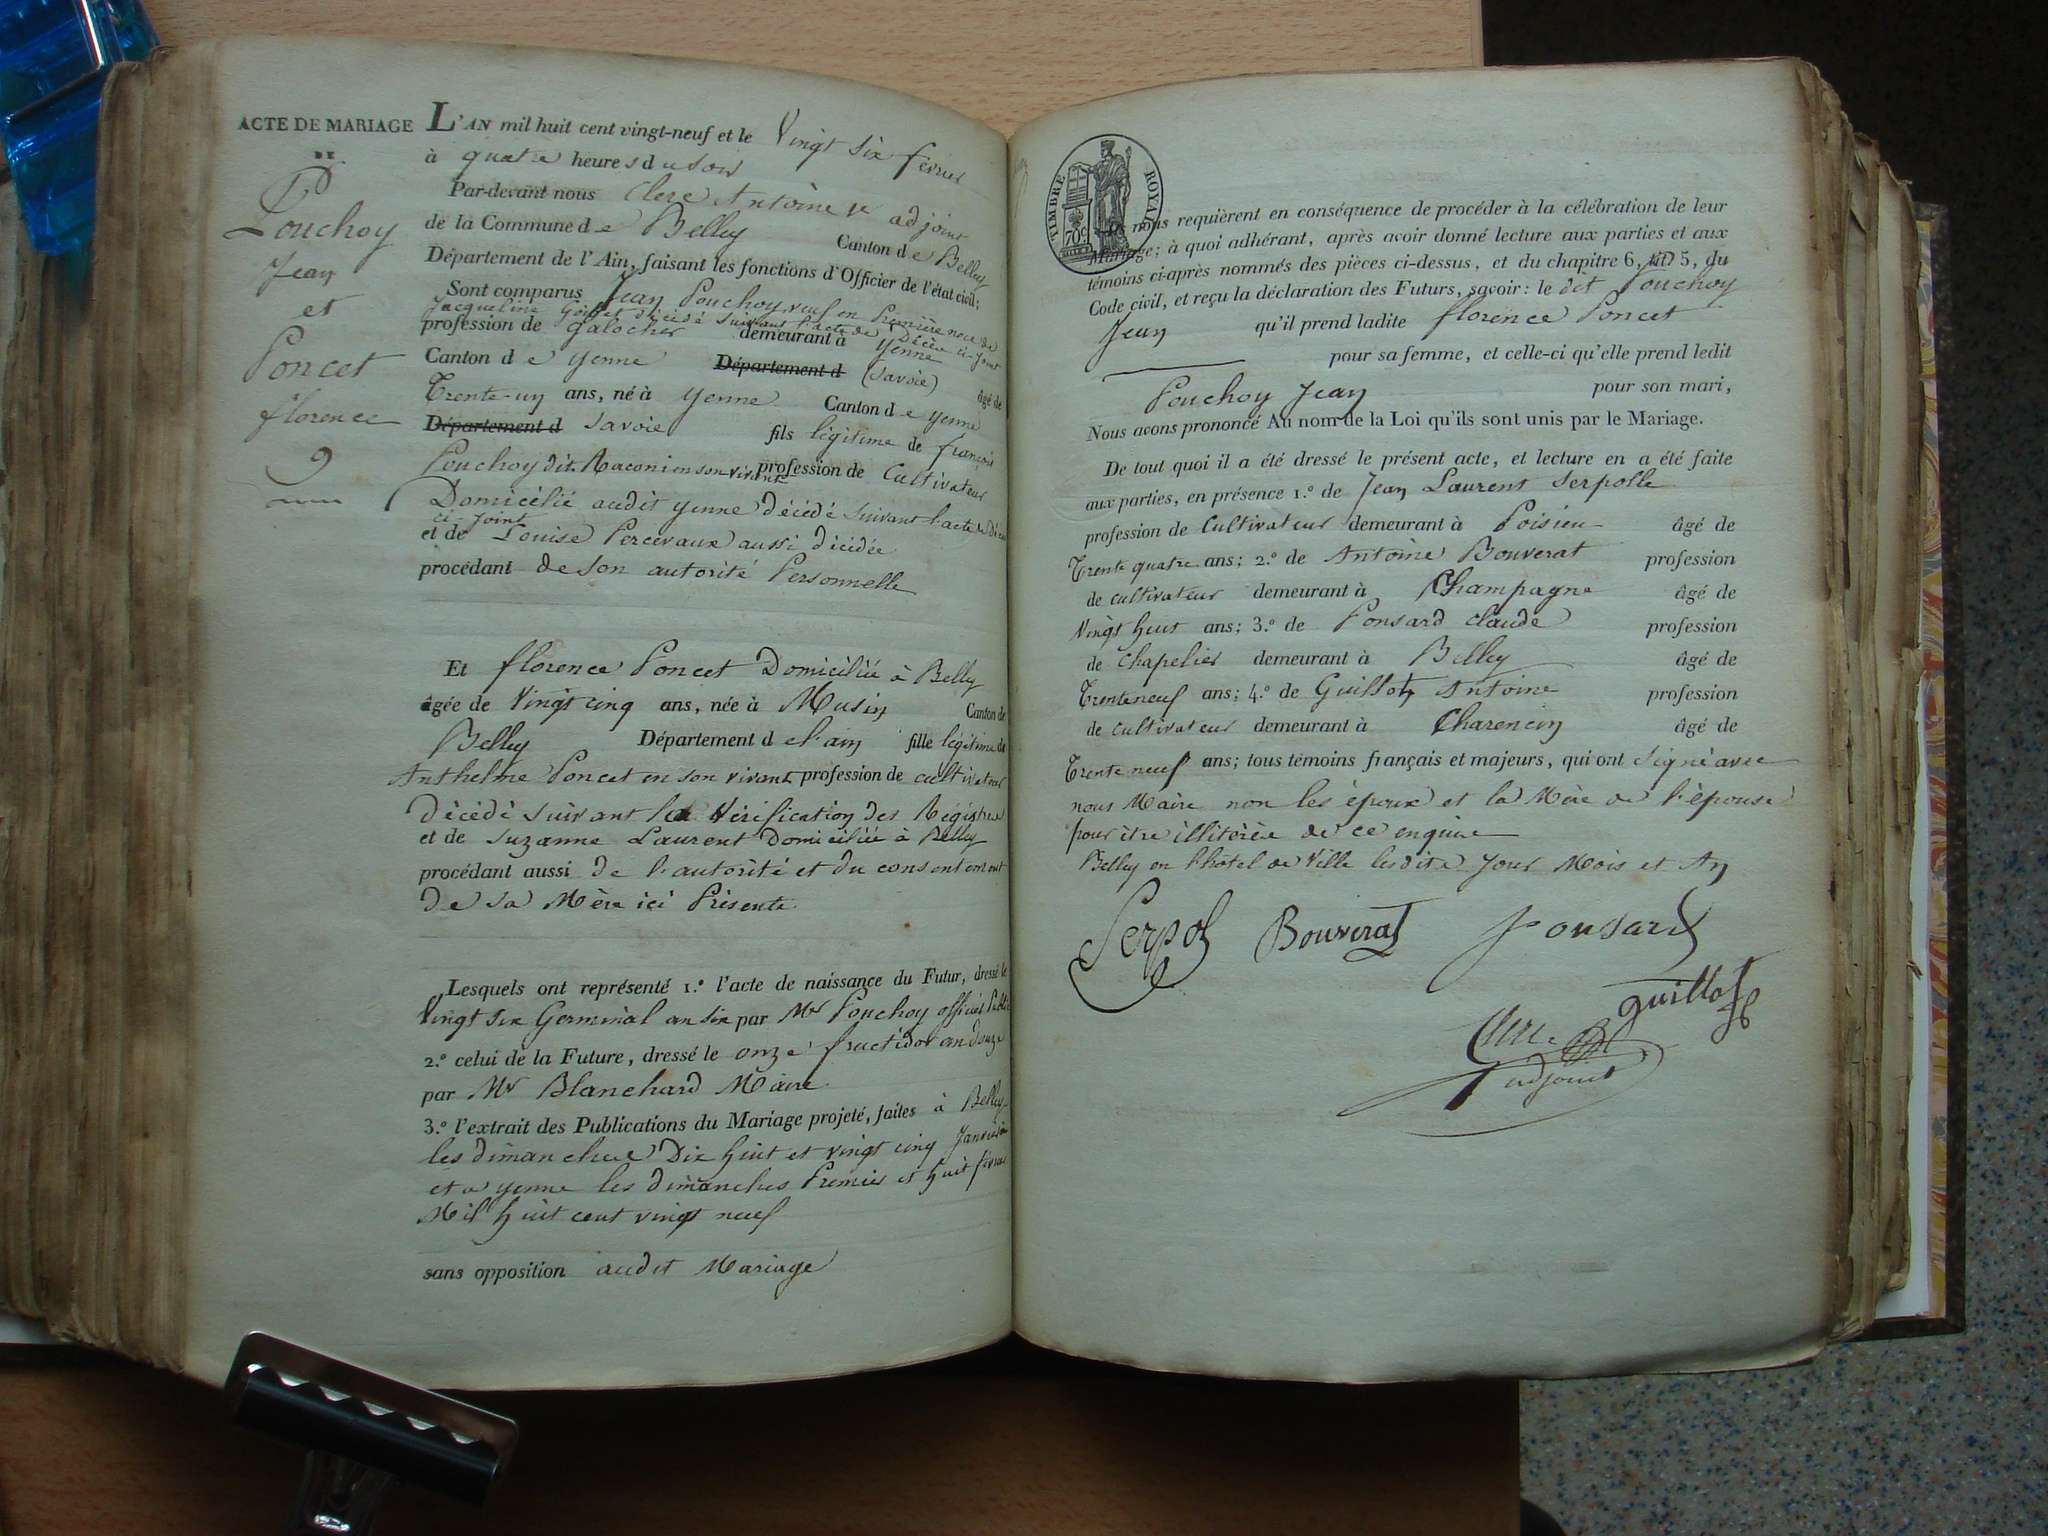 ACTE DE MARIAGE
DE
Pouchoy
Jean
et
Poncet
florence
9
L'AN mil huit cent vingt-neuf et le Vingt six fevrier
à quatre heures du soir
Par-devant nous Clerc Antoine adjoint
de la Commune de Belley Canton de Belley
Département de l'Ain, faisant les fonctions d'Officier de l'état civil;
Sont comparus Jean Pouchoy veuf en Première noce de
Jacqueline décédé suivant l'acte de Décès ci-joint
profession de galocher demeurant à yenne
Canton de yenne Département d (Savoie) âgé de
Trente-un ans, né à yenne Canton de yenne
Département d Savoie fils légitime de françois
Pouchoy dit Maconi en son vivant profession de Cultivateur
Domicilié audit yenne décédé suivant l'acte de Décès
ci joint
et de Louise Percevaux aussi décédée
procédant de son autorité Personnelle
Et florence Poncet Domiciliée à Belley
âgée de Vingt cinq ans, née à Musin Canton de
Belley Département de l'ain fille légitime de
Anthelme Poncet en son vivant profession de cultivateur
Décédé suivant la Vérification des Régistres
et de Suzanne Laurent Domiciliée à Belley
procédant aussi de l'autorité et du consentement
de sa Mère ici Présente
Lesquels ont représenté 1.º l'acte de naissance du Futur, dressé le
Vingt six Germinal an six par Mr Pouchoy officier Public
2.º celui de la Future, dressé le onze fructidor an douze
par Mr Blanchard Maire
3.º l'extrait des Publications du Mariage projeté, faites à Belley
les dimanche Dix huit et vingt cinq Janvier
et a yenne les dimanches Premier et huit fevrier
Mil huit cent vingt neuf
sans opposition audit Mariage
TIMBRE ROYAL
70c
Et nous requièrent en conséquence de procéder à la célébration de leur
Mariage; à quoi adhérant, après avoir donné lecture aux parties et aux
témoins ci-après nommés des pièces ci-dessus, et du chapitre 6, titre 5, du
Code civil, et reçu la déclaration des Futurs, savoir: le dit Pouchoy
Jean qu'il prend ladite florence Poncet
pour sa femme, et celle-ci qu'elle prend ledit
Pouchoy Jean pour son mari,
Nous avons prononcé Au nom de la Loi qu'ils sont unis par le Mariage.
De tout quoi il a été dressé le présent acte, et lecture en a été faite
aux parties, en présence 1.º de Jean Laurent Serpolle
profession de Cultivateur demeurant à Poisieu âgé de
Trente quatre ans; 2.º de Antoine Bouverat profession
de cultivateur demeurant à Champagne âgé de
Vingt huit ans; 3.º de Ponsard Claude profession
de Chapelier demeurant à Belley âgé de
Trente neuf ans; 4.º de Guillot Antoine profession
de cultivateur demeurant à Charencin âgé de
Trente neuf ans; tous témoins français et majeurs, qui ont signé avec
nous Maire non les époux et la Mère de l'épouse
pour être illiterée de ce enquise
Belley en l'hôtel de Ville lesdits Jour Mois et An
Serpol Bouverat Ponsard
guillot
Clerc
adjoint